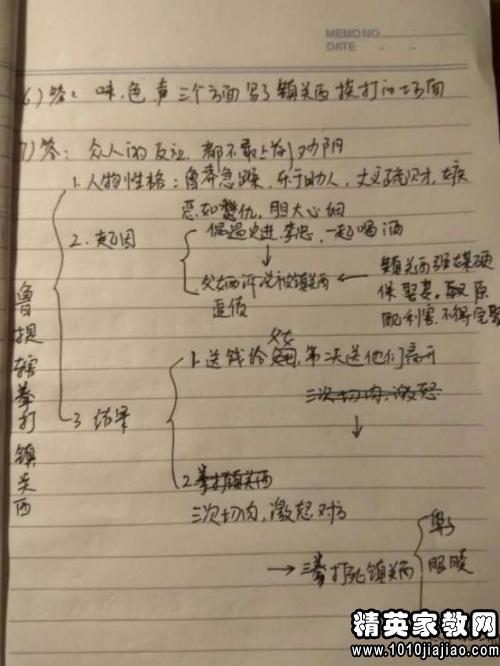 MEMO NO.
DATE
6)答：味、色、声三个方面写了镇关西挨打的场面
7)答：众人的反应，都不敢上前劝阻
1.人物性格：鲁莽急躁，乐于助人，仗义疏财，嫉
恶如仇，胆大心细
2.起因
偶遇史进、李忠，一起喝酒
父女西诉说被镇关西
逼债
镇关西强媒硬
保娶妾，
3.结果
1.送钱给父女，第二天送他们离开
三次切肉，激怒
2.拳打镇关西
三次切肉，激怒对方
→三拳打死镇关西
鼻子
眼睛
鲁提辖拳打镇关西
精英家教网
www.1010jiajiao.com